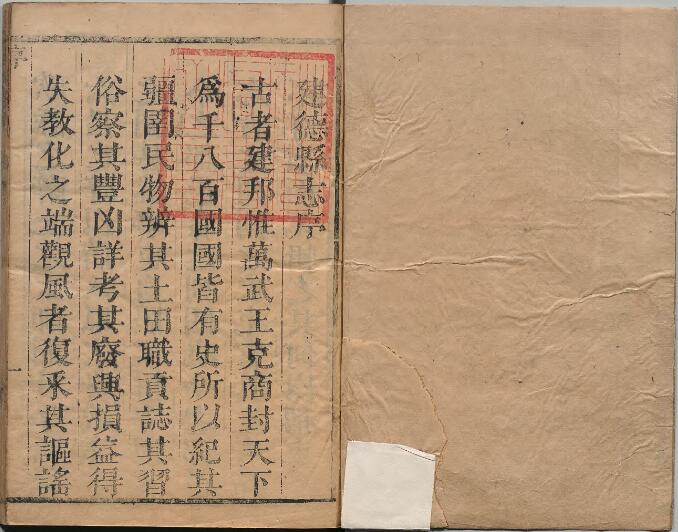 建德縣志序
古者建邦惟萬武王克商封天下
爲千八百國國皆有史所以紀其
疆圉民物辨其土田職貢誌其習
俗察其豐凶詳考其廢興損益得
失教化之端觀風者復釆其謳謠
序
一